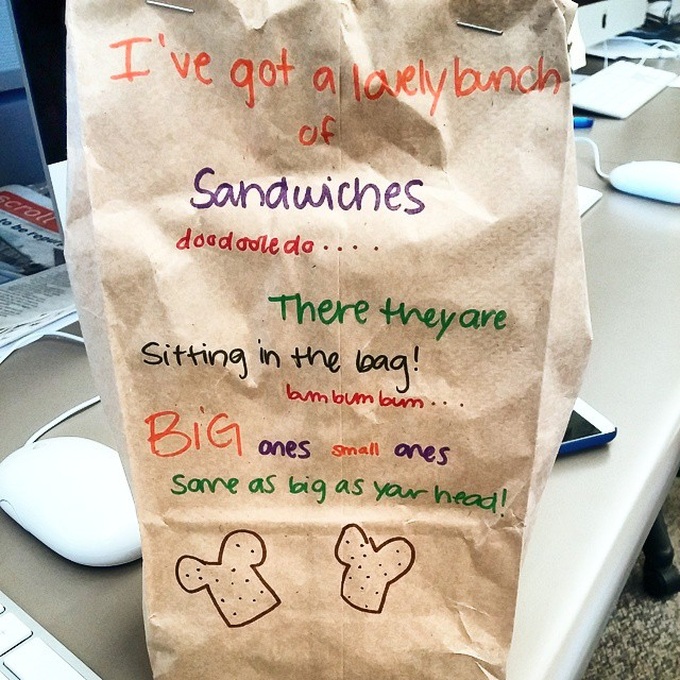 I've got a lovely bunch
of
Sandwiches
doodooledo....
There they are
Sitting in the bag!
bum bum bum...
BiG ones small ones
Some as big as your head!
scroll
to be